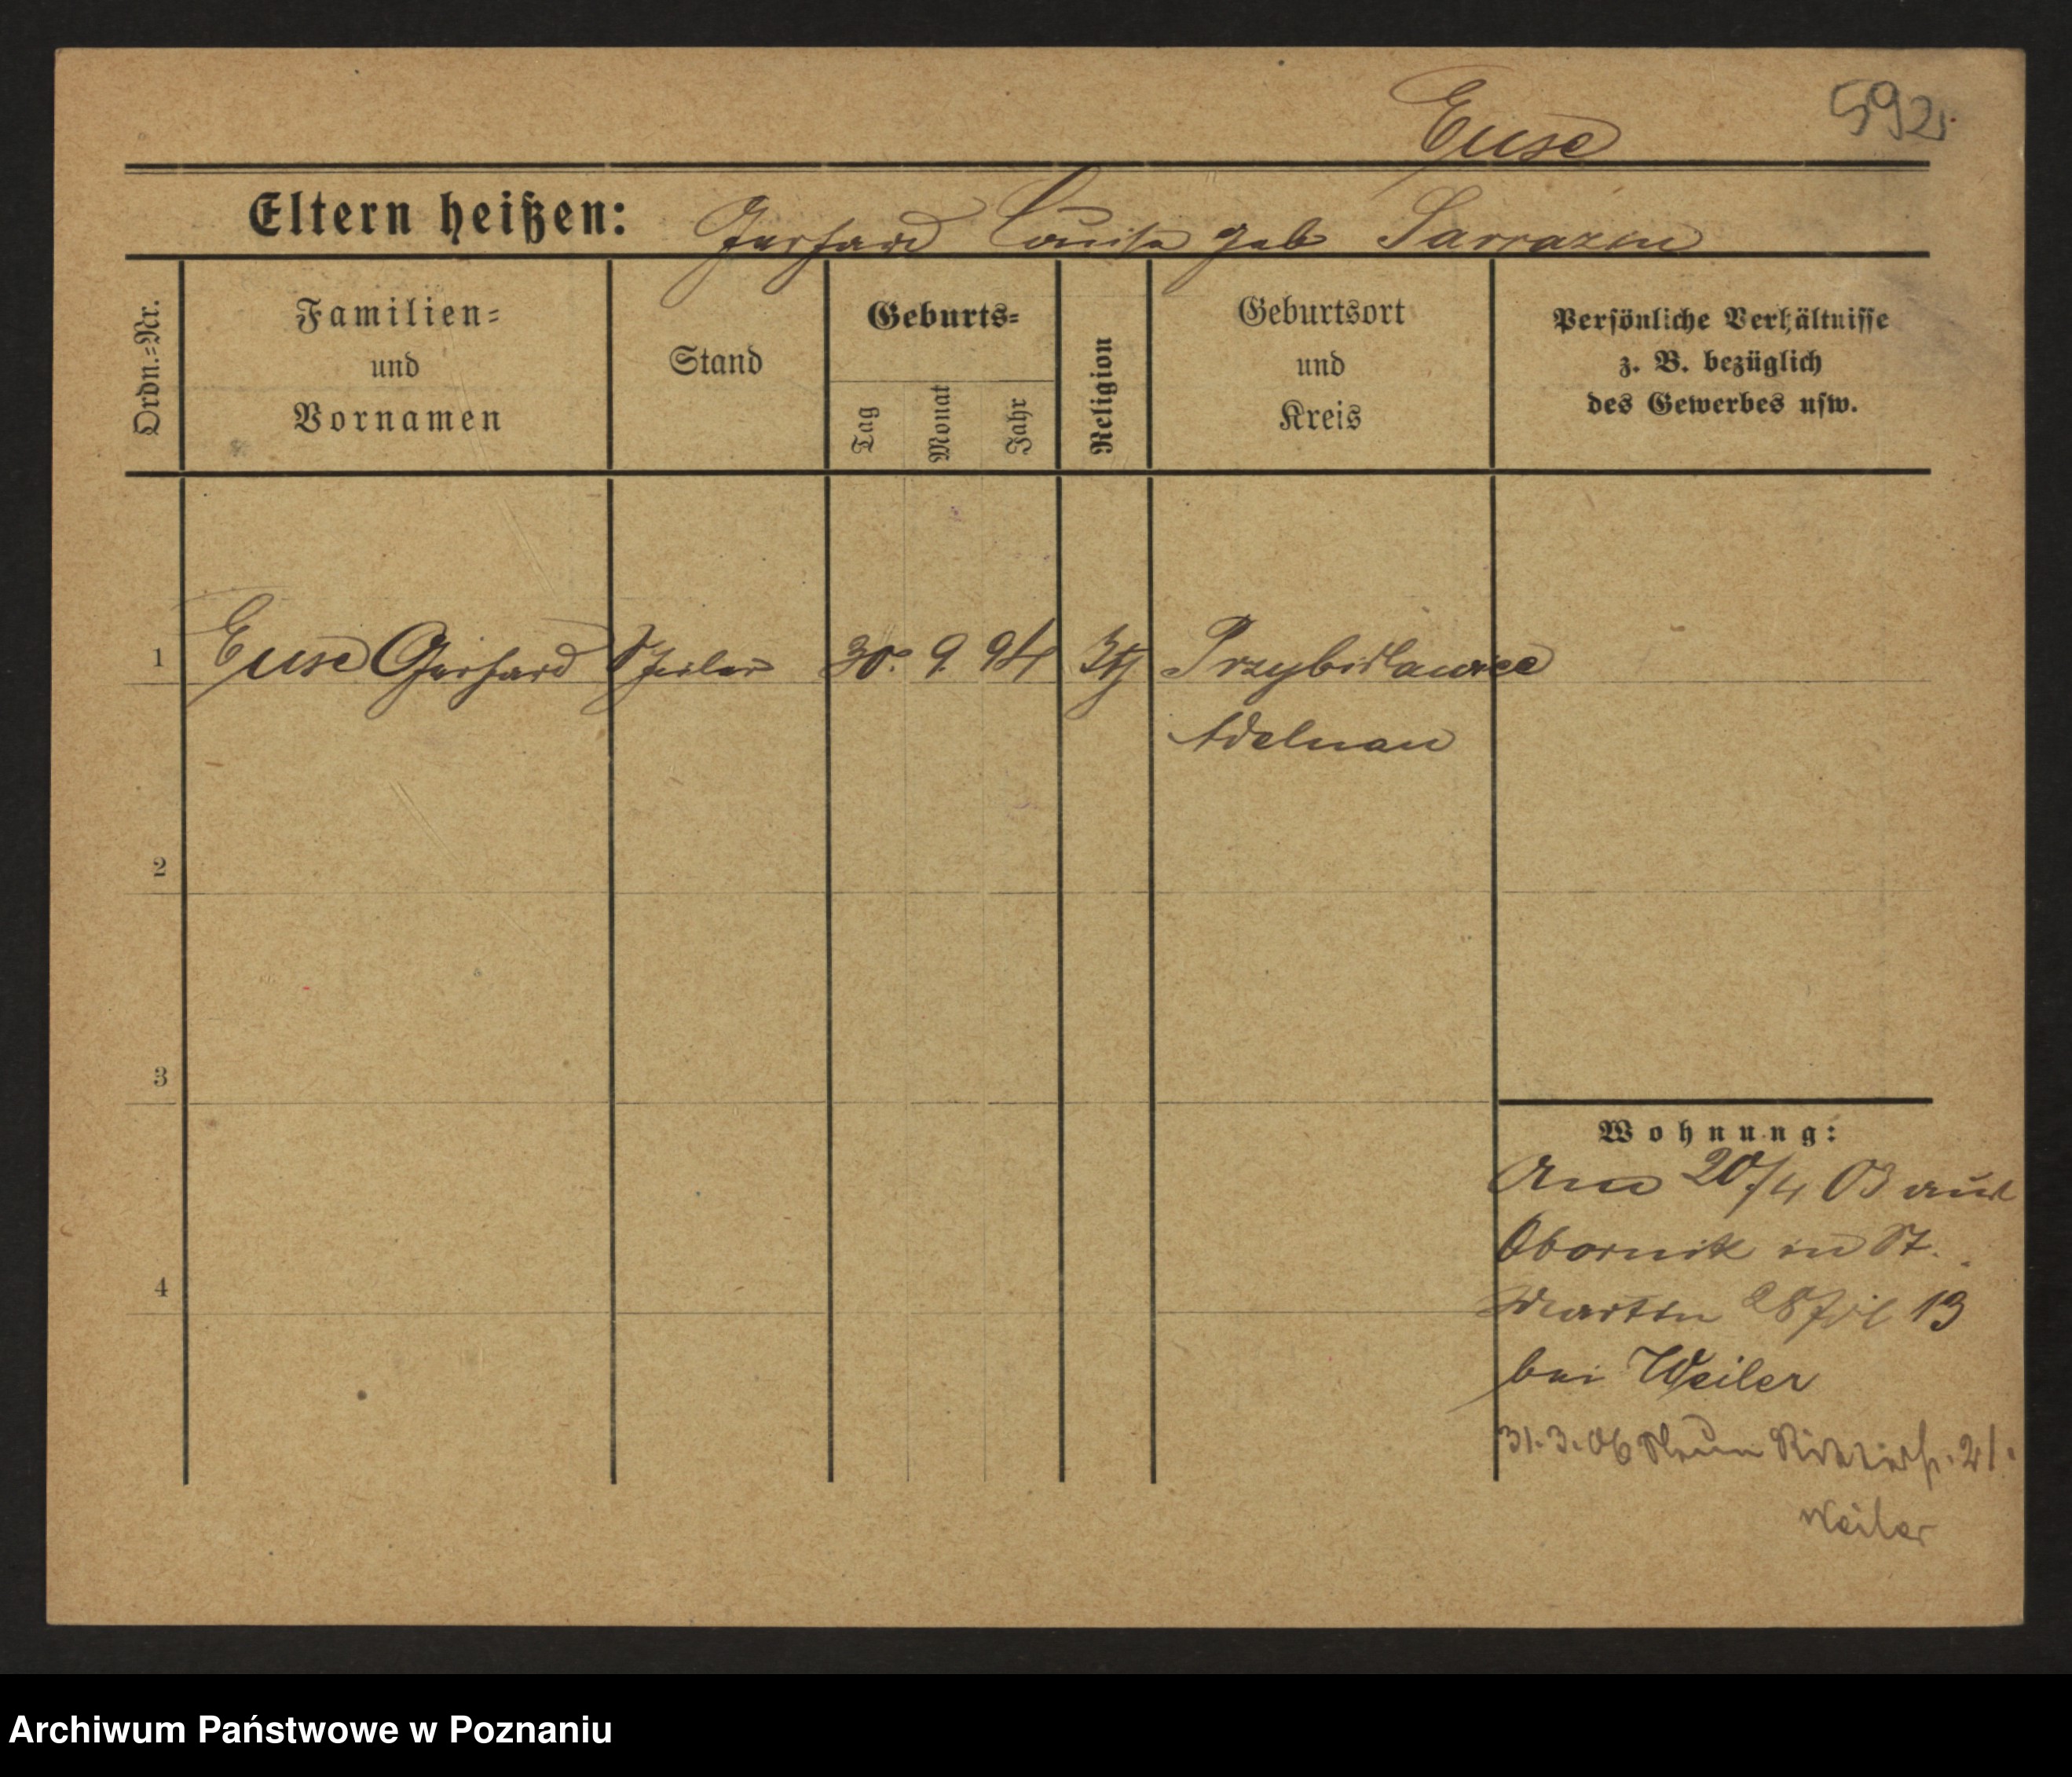 592
Euse
Eltern heißen: Gerhard Louise geb Sarrazin
Ordn.=Nr.
Familien= und Vornamen
Stand
Geburts=
Tag
Monat
Jahr
Religion
Geburtsort und Kreis
Persönliche Verhältnisse z. B. bezüglich des Gewerbes usw.
1 Euse Gerhard Schüler 30. 9. 94
Adelnau
2
3
4
Wohnung:
Am 20/4 03 aus
Obornik in St.
Martin 13
bei Weiler
31.3.06 21.
Weiler
Archiwum Państwowe w Poznaniu